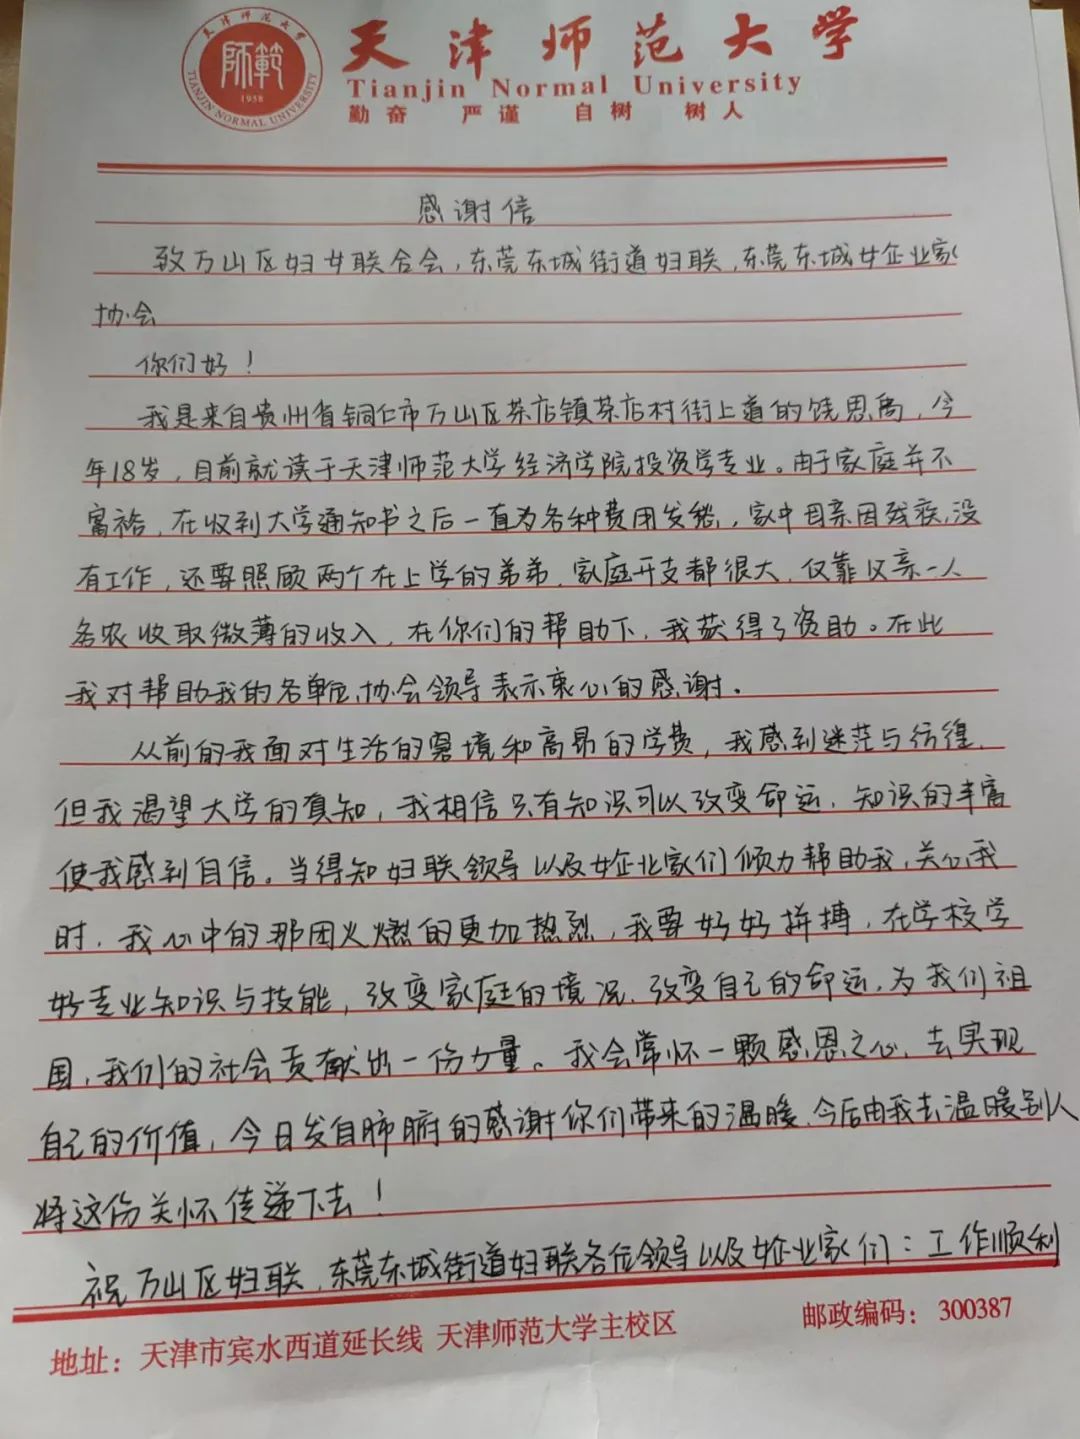 天津师范大学
師範
1958
TIANJIN NORMAL UNIVERSITY
Tianjin Normal University
勤奋 严谨 自树 树人
感谢信
致万山区妇女联合会,东莞东城街道妇联,东莞东城女企业家
协会
你们好!
我是来自贵州省铜仁市万山区茶店镇茶店村街上道的饶思禹,今
年18岁,目前就读于天津师范大学经济学院投资学专业。由于家庭并不
富裕,在收到大学通知书之后一直为各种费用发愁,家中母亲因残疾,没
有工作,还要照顾两个在上学的弟弟,家庭开支都很大,仅靠父亲一人
务农收取微薄的收入,在你们的帮助下,我获得了资助。在此
我对帮助我的各单位,协会领导表示衷心的感谢。
从前的我面对生活的窘境和高昂的学费,我感到迷茫与彷徨,
但我渴望大学的真知,我相信只有知识可以改变命运,知识的丰富
使我感到自信。当得知妇联领导以及女企业家们倾力帮助我,关心我
时,我心中的那团火燃的更加热烈,我要好好拼搏,在学校学
好专业知识与技能,改变家庭的境况,改变自己的命运,为我们祖
国,我们的社会贡献出一份力量。我会常怀一颗感恩之心,去实现
自己的价值,今日发自肺腑的感谢你们带来的温暖,今后由我去温暖别人
将这份关怀传递下去!
祝万山区妇联,东莞东城街道妇联各位领导以及女企业家们:工作顺利
地址:天津市宾水西道延长线 天津师范大学主校区
邮政编码:300387